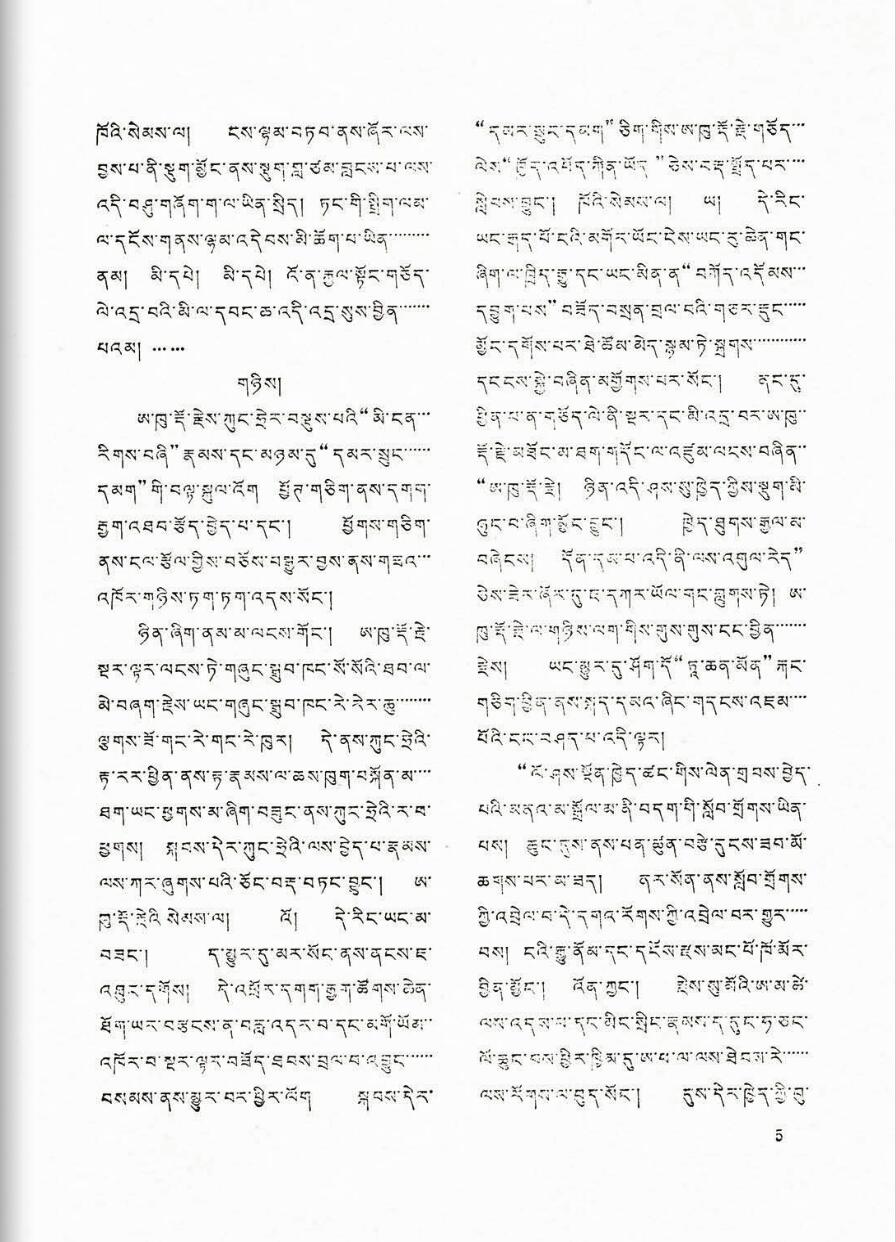 ཁོའི་སེམས་ལ། ངས་ལྷམ་བཏབ་ནས་ཞོར་ལས་
བྱས་པ་ནི་སྡུག་མྱོང་ནས་སྡུག་གླུ་ཙམ་བླངས་པ་ལས་
འདི་བཤུ་གཞོག་ག་ལ་ཡིན་སྲིད། ཏང་གི་སྒྲིག་ལམ་
ལ་དངོས་གནས་ལྷམ་འདེབས་མི་ཆོག་པ་ཡིན་········
ནམ། མི་དཔེ། མི་དཔེ། འོ་ན་རྒྱལ་སྟོང་གཅོད་
ལེ་འདྲ་བའི་མི་ལ་དབང་ཆ་འདི་འདྲ་སུས་བྱིན་······
པའམ། ······
གཉིས།
ཨ་ཁུ་རྡོ་རྗེས་ཀུང་ཧྲེར་བསྡུས་པའི“མི་ངན་···
རིགས་བཞི”རྣམས་དང་མཉམ་དུ“དམར་སྲུང་·····
དམག”གི་བལྟ་སྐུལ་འོག ཕྱོཊ་གཅིག་ནས་དགག་
རྒྱག་འཐབ་རྩོད་བྱེད་པ་དང་། ཕྱོགས་གཅིག་
ནས་ངལ་རྩོལ་གྱིས་བཅོས་བསྒྱུར་བྱས་ནས་གཟའ་···
འཁོར་གཉིས་ཏག་ཏག་འདས་སོང་།
ཉིན་ཞིག་ནམ་མ་ལངས་གོང་། ཨ་ཁུ་རྡོ་རྗེ་
སྔར་ལྟར་ལངས་ཏེ་གཞུང་སྒྲུབ་ཁང་སོ་སོའི་ཐབ་ལ་
མེ་བཞག་རྗེས་ཡང་གཞུང་སྒྲུབ་ཁང་རེ་རེར་ཆུ་······
ལྕགས་ཟོ་གང་རེ་གང་རེ་ཁུར། དེ་ནས་ཀུང་ཧྲེའི་
རྟ་རར་ཕྱིན་ནས་རྟ་རྣམས་ལ་ཆས་ཁུག་བསྐོན་མ་···
ཐག་ཡང་ཕྱགས་མ་ཞིག་བཟུང་ནས་ཀུང་ཧྲེའི་ར་བ་
ཕྱགས། སྐབས་དེར་ཀུང་ཧྲེའི་ལས་བྱེད་པ་རྣམས་
ལས་ཀར་ཞུགས་པའི་ཅོང་བརྡ་བཏང་བྱུང་། ཨ་
ཁུ་རྡོ་རྗེའི་སེམས་ལ། འོ། དེ་རིང་ཡང་མ་
བཟང་། ད་མྱུར་དུ་མར་སོང་ནས་ནངས་ཇ་
འཐུང་དགོས། དེ་འཕྲོར་དགག་རྒྱག་ཚོགས་ཆེན་
ཐོག་ཡར་བཙངས་ན་བརླ་འདར་བ་དང་མགོ་ཡོམ་··
འཁོར་བ་སྔར་ལྟར་བཟོད་ཐབས་བྲལ་བ་འབྱུང་·····
བསམས་ནས་མྱུར་བར་ཕྱིར་ལོག སྐབས་དེར་
“དམར་སྲུང་དམག”ཅིག་གིས་ཨ་ཁུ་རྡོ་རྗེ་གཅོད་···
ལེས“ཁྱོད་འབོད་ཀྱིན་ཡོད”ཅེས་བརྡ་སྤྲོད་པར་···
སླེབས་བྱུང་། ཁོའི་སེམས་ལ། ཨ། དེ་རིང་
ཡང་རྒད་པོ་ངའི་མགོར་ཡོང་ངེས་ཡང་ན་ཆེན་གང་
ཞིག་ལ་ཁྲིད་རྒྱུ་དང་ཡང་མིན་ན“བཀོད་འདོམས་···
དབྱུག་པས”བཟོད་བསྲན་བྲལ་བའི་གཅར་རྡུང་·····
མྱོང་དགོས་པར་ཐེ་ཚོམ་མེད་སྙམ་ཏེ་སྐྲག་···········
དངངས་སྐྱེ་བཞིན་མགྱོགས་པར་སོང་། ནང་དུ་
ཕྱིན་པ་ན་གཅོད་ལེ་ནི་སྔར་དང་མི་འདྲ་བར་ཨ་ཁུ་
རྡོ་རྗེ་མཐོང་མ་ཐག་གདོང་ལ་འཛུམ་ལངས་བཞིན་··
“ཨ་ཁུ་རྡོ་རྗེ། ཉིན་འདི་ཤས་སུ་ཁྱེད་ཀྱིས་སྡུག་མི་
ཉུང་བ་ཞིག་མྱོང་བྱུང་། ཁྱེད་ཐུགས་རྒྱལ་མ་
བཞེངས། དོན་དམ་པ་འདི་ནི་ལས་འགུལ་རེད”
ཅེས་ཟེར་ཞོར་དུ་ཇ་དཀར་ཡོལ་གང་བླུགས་ཏེ། ཨ་
ཁུ་རྡོ་རྗེ་ལ་གཉིས་ལག་གིས་གུས་གུས་ངང་བྱིན་······
རྗེས། ཡང་མྱུར་དུ་ཤོག་དོ“ཏཱ་ཆན་མོན”རྐང་
གཅིག་བྱིན་ནས་སྐད་དམའ་ཞིང་གདངས་འཇམ་···
པོའི་ངང་བཤད་པ་འདི་ལྟར།
“ངོ་ཤས་སྔོན་ཁྱེད་ཚང་གིས་ལེན་གྲབས་བྱེད་
པའི་མནའ་མ་སྒྲོལ་མ་ནི་བདག་གི་སློབ་གྲོགས་ཡིན་
པས། ཆུང་དུས་ནས་ཕན་ཚུན་བརྩེ་དུངས་ཟབ་མོ་
ཆགས་པར་མ་ཟད། ནར་སོན་ནས་སློབ་གྲོགས་
ཀྱི་འབྲེལ་བ་དེ་དགའ་རོགས་ཀྱི་འབྲེལ་བར་གྱུར་····
བས། ངའི་རྒྱུ་ནོམ་དང་དངོས་རྫས་མང་པོ་ཁོ་མོར་
བྱིན་མྱོང་། འོན་ཀྱང་། རྗེས་སུ་མོའི་ཨ་མ་ཚེ་
ལས་འདས་པ་དང་མིང་སྲིང་རྣམས་ད་དུང་ཧ་ཅང་
ལོ་ཆུང་བས་ཁྱིར་ཁྱིམ་དུ་ཨ་ཕ་ལ་ལས་ཐེངས་རེ་·····
ལས་རོགས་ལ་བུད་སོང་། དུས་དེར་ཁྱེད་ཀྱི་བུ་
5